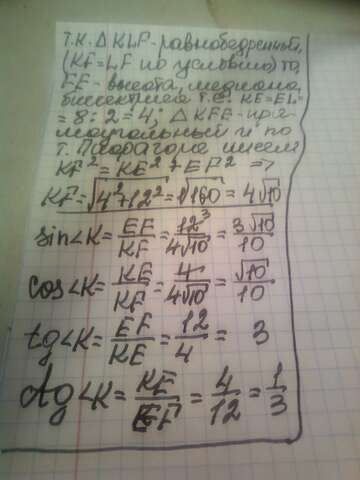 Т.К. Δ KLF - равнобедренный,
(KF = LF по условию) то,
FE - высота, медиана,
биссектриса т.е. KE = EL =
= 8 : 2 = 4; Δ KFE - пря-
моугольный и по
т. Пифагора имеем
KF² = KE² + EF² =>
KF = √4²+12² = √160 = 4√10
sin∠K = EF/KF = 12³/4√10 = 3√10/10
cos∠K = KE/KF = 4/4√10 = √10/10
tg∠K = EF/KE = 12/4 = 3
ctg∠K = KE/EF = 4/12 = 1/3